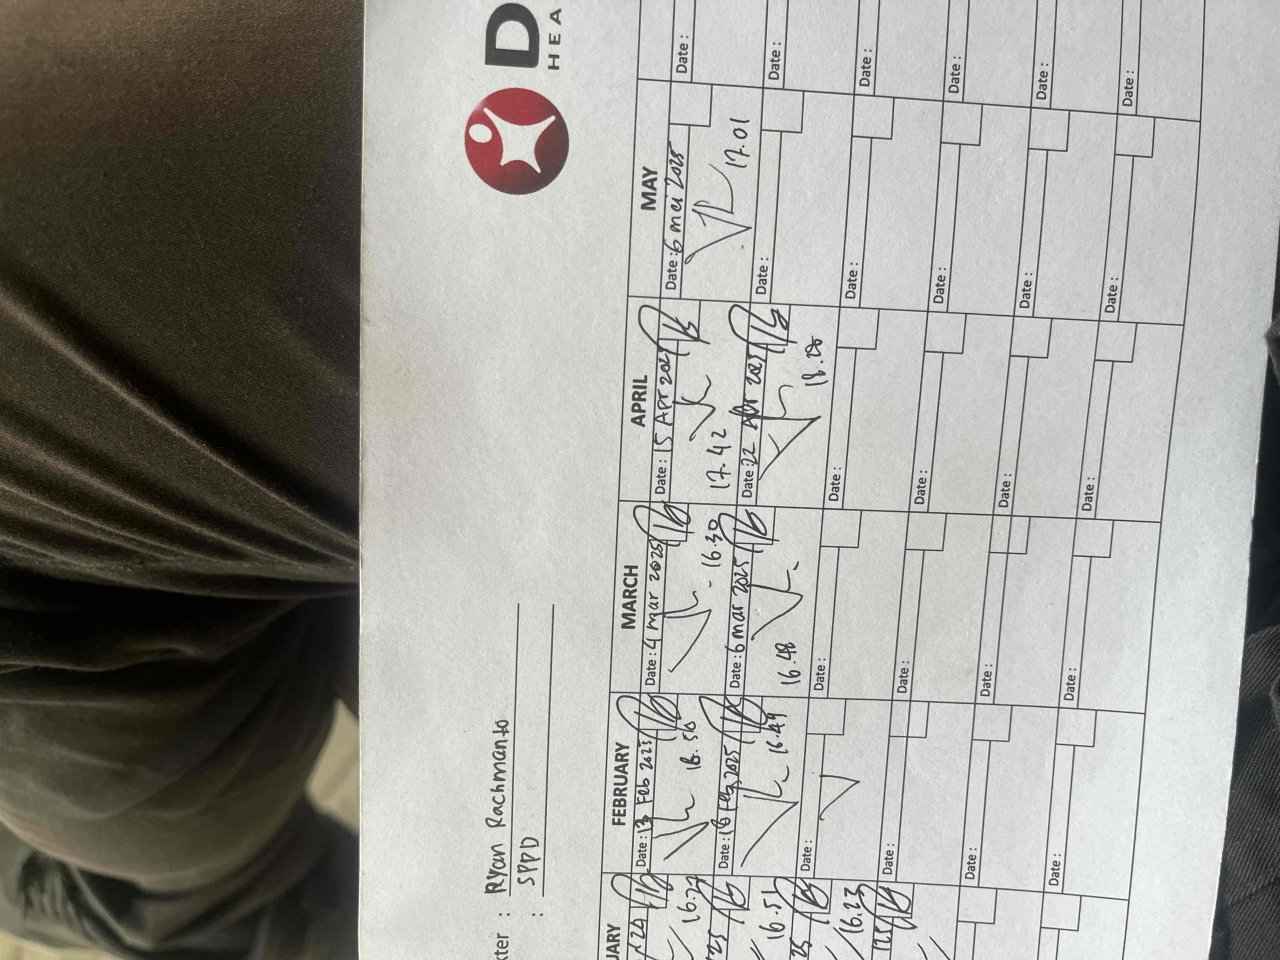 D
HEA
kter : Ryan Rachmanto
: SPPD
UARY FEBRUARY MARCH APRIL MAY
Date : 13 Feb 2025 Date : 4 mar 2025 Date : 15 Apr 2025 Date : 6 mei 2025 Date :
16.27 18.56 16.30 17.42 17.01
Date : 18 Feb 2025 Date : 6 mar 2025 Date : 22 Apr 2025 Date : Date :
16.51 16.49 16.48 18.28
Date : Date : Date : Date : Date :
16.23
Date : Date : Date : Date : Date :
Date : Date : Date : Date : Date :
Date : Date : Date : Date : Date :